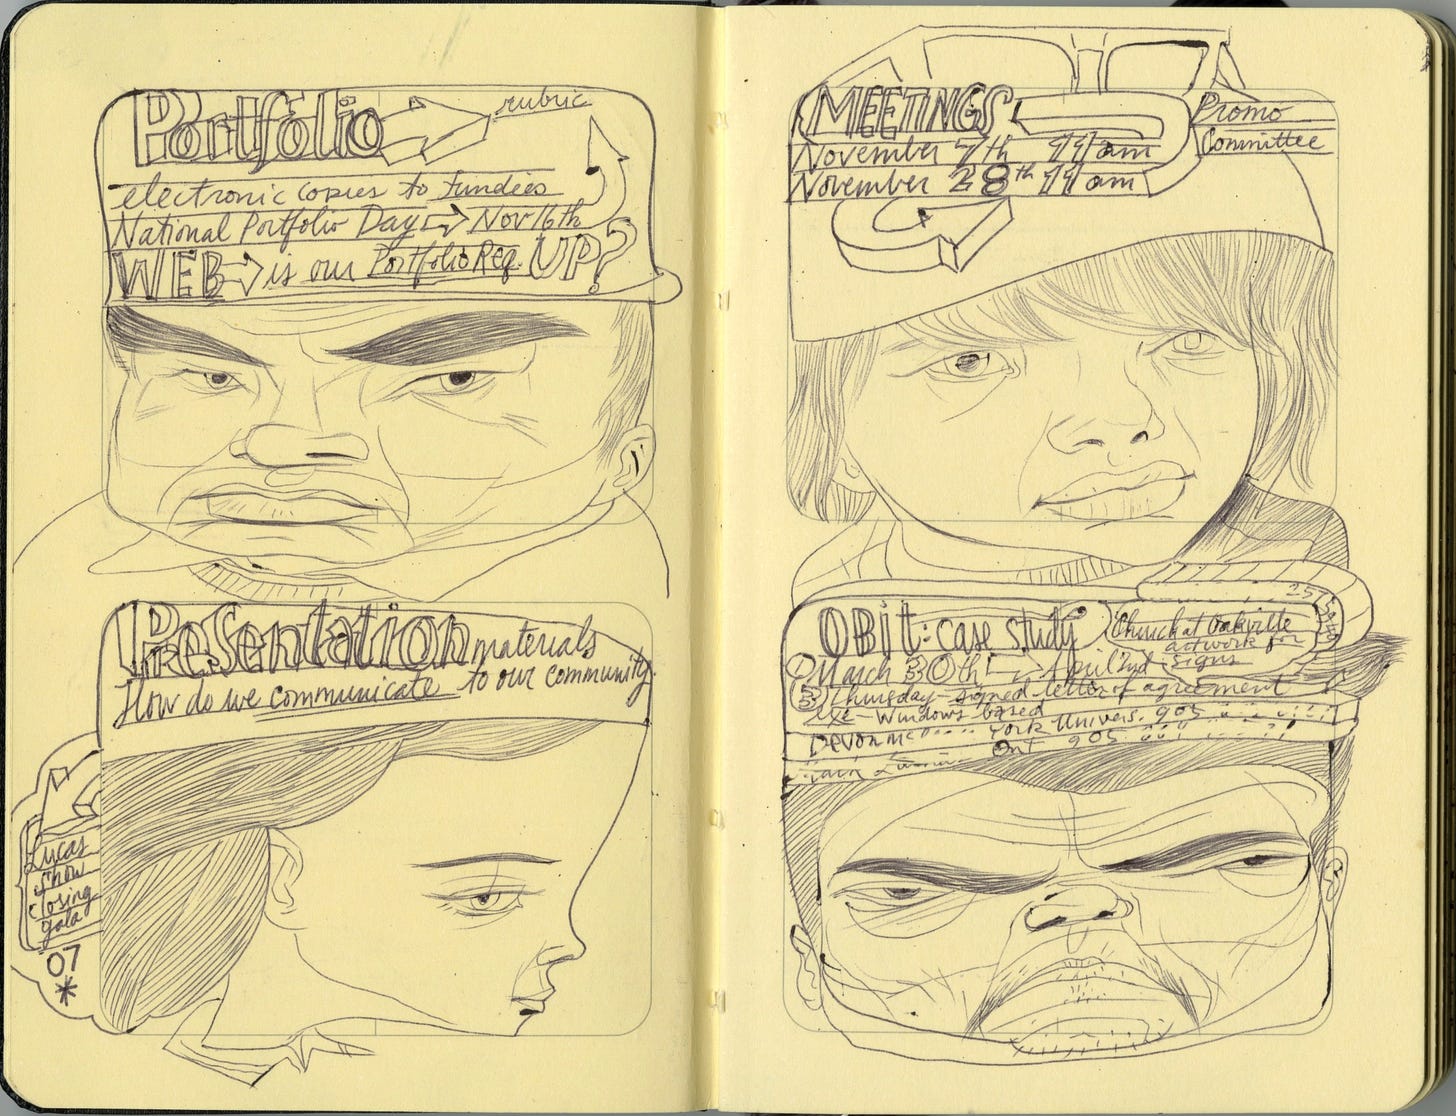 Portfolio rubric
electronic copies to Fundées
National Portfolio Day Nov 16th
WEB is our Portfolio Req. UP?
Presentation materials
How do we communicate to our community
Lucas
Show
closing
gala
07
*
MEETINGS Promo
November 7th 11am Committee
November 28th 11am
OBit: case study Church at Oakville
artwork for
① March 30th April 2nd signs
③ Thursday - signed letter of agreement
exe - Windows based
Devon York Univers. 905
Ont 905